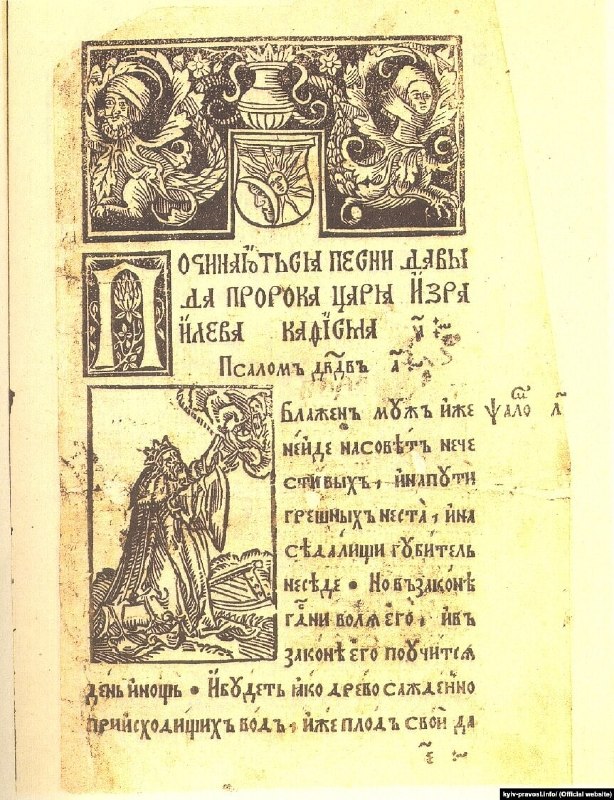 ПОЧИНАЮТЬСІА ПЕСНИ ДАВЫ
ДА ПРОРОКА ЦАРІА ЙЗРА
ЙЛЕВА КАѲІСМА а҃
Псаломъ дв҃двъ а҃
Блаженъ мужъ иже
нейде насовѣтъ нече
стивыхъ, инапути
грешныхъ неста, ина
сѣдалищи губитель
несѣде • Но въ законѣ
гс҃ни воля его, ивъ
законѣ его поучится
день инощь • И будеть ꙗко древо сажденно
приисходищихъ водъ, иже плодъ свой да
ѱало҃м а҃
kyiv-pravosl.info/ (Official website)